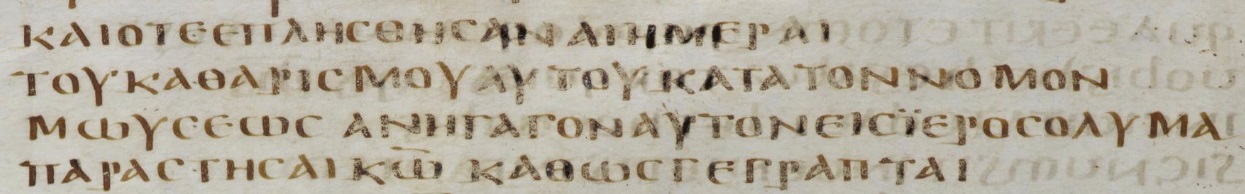 ΚΑΙΟΤΕΕΠΛΗСΘΗСΑΝΑΙΗΜΕΡΑΙ
ΤΟΥΚΑΘΑΡΙСΜΟΥΑΥΤΟΥΚΑΤΑΤΟΝΝΟΜΟΝ
ΜωΥСΕωС ΑΝΗΓΑΓΟΝΑΥΤΟΝΕΙСΪΕΡΟСΟΛΥΜΑ
ΠΑΡΑСΤΗСΑΙ Κω̅ ΚΑΘωСΓΕΓΡΑΠΤΑΙ